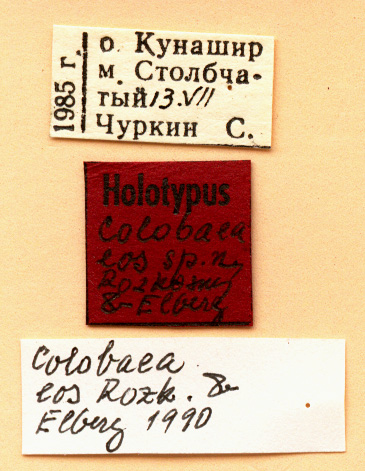 1985 г.
о. Кунашир
м. Столбча-
тый 13.VII
Чуркин С.
Holotypus
Colobaea
eos sp.n.
Rozkošný
& Elberg
Colobaea
eos Rozk. &
Elberg 1990